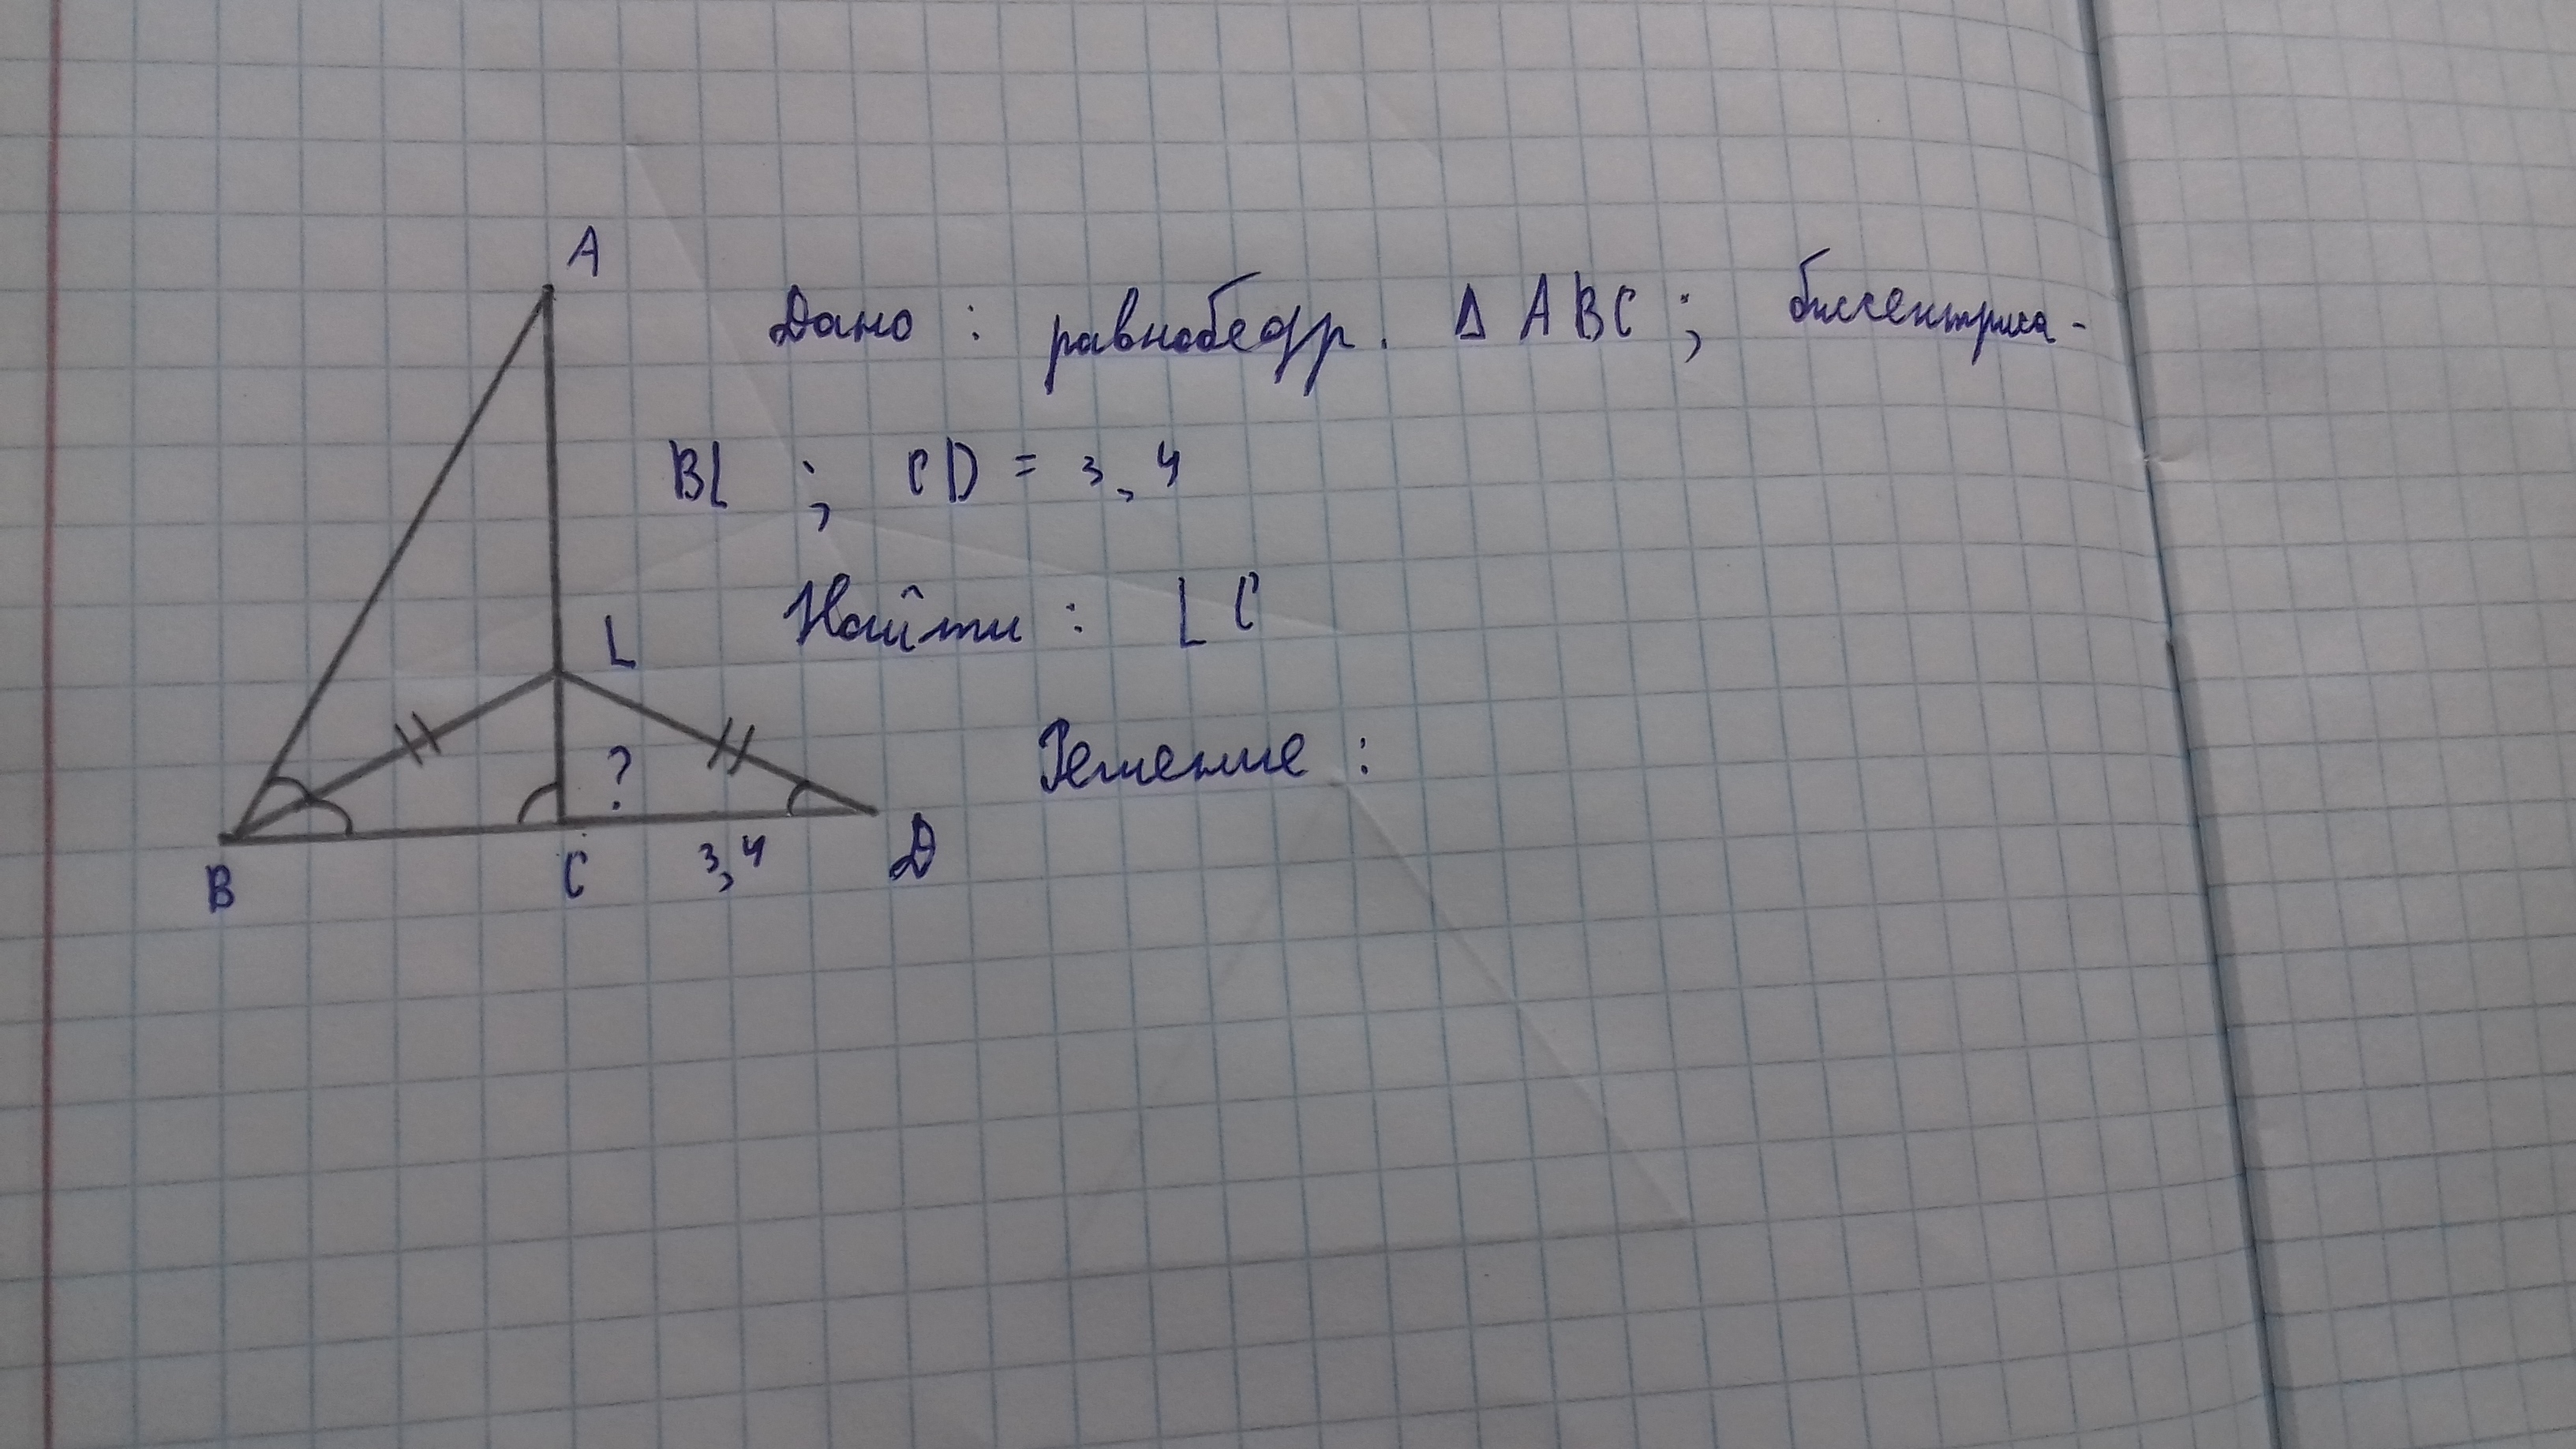 A
Дано : равнобедр. Δ ABC ; биссектриса -
BL ; CD = 3,4
Найти : LC
L
Решение :
?
B C 3,4 D